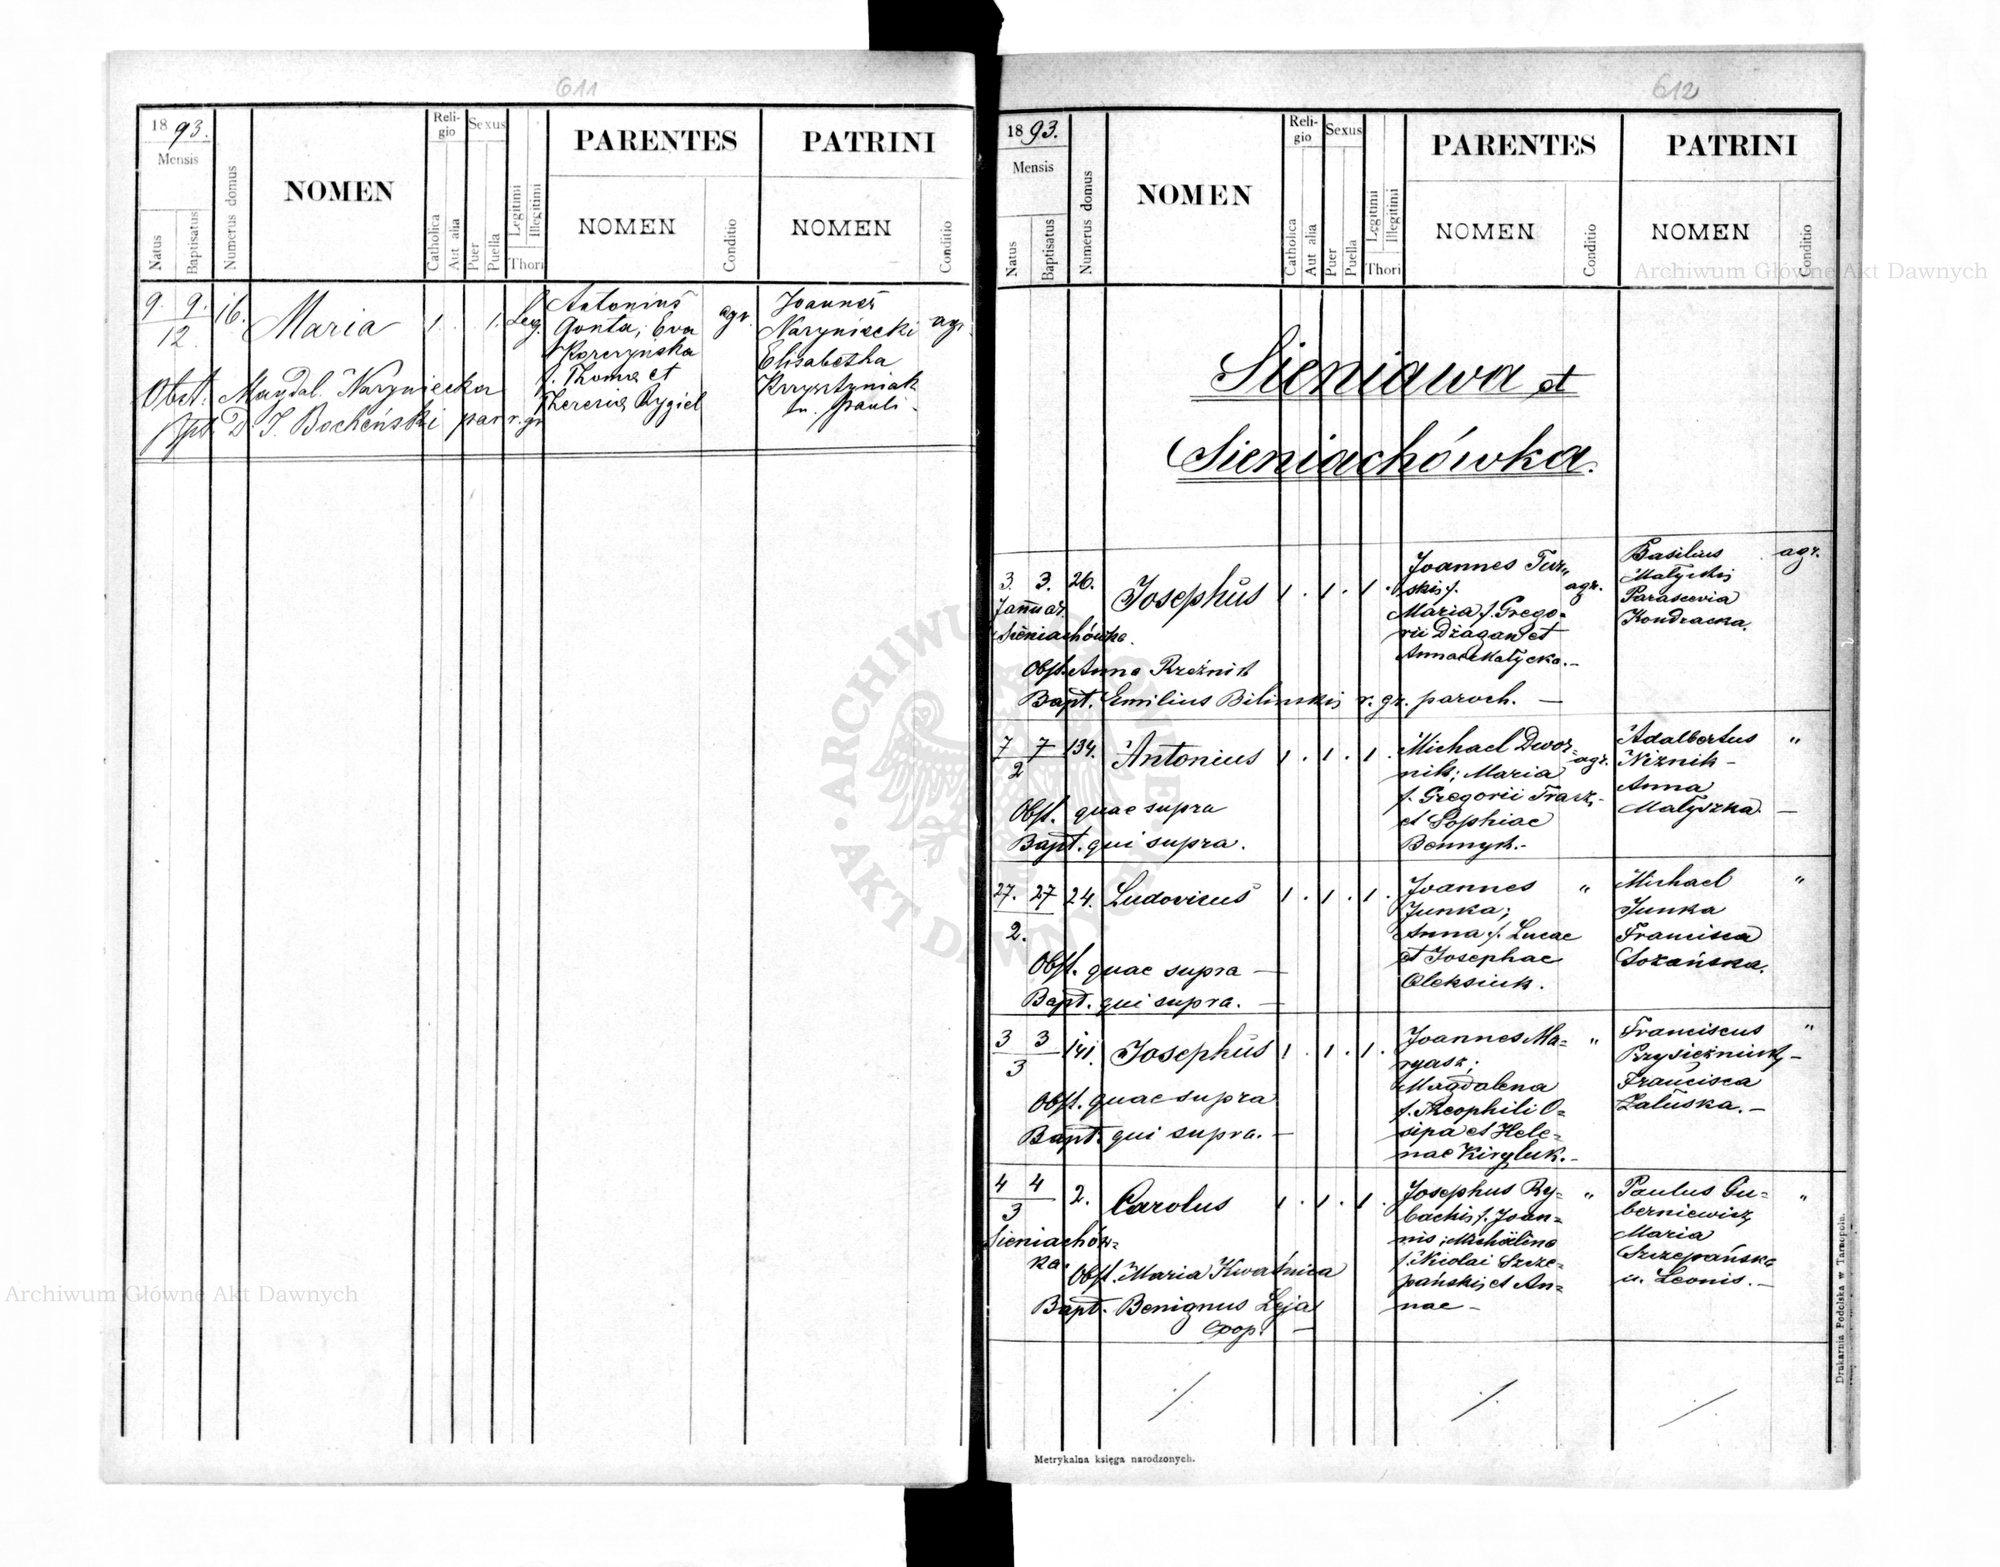 611
1893.
Mensis
Natus
Baptisatus
Numerus domus
NOMEN
Religio
Catholica
Aut alia
Sexus
Puer
Puella
Legitimi
Illegitimi
Thori
PARENTES
NOMEN
Conditio
PATRINI
NOMEN
Conditio
9. 9. 16. Maria 1. 1. Leg.
12
Antonius
Gonta, Eva
Korczyńska
f. Thomae et
Theresiae Rygiel
agr.
Joannes
Naryniecki
Elisabetha
Krzysztyniak
u. Pauli.
agr.
Obst. Magdal. Naryniecka
Bpt. D. J. Bocheński par r. gr
612
1893.
Mensis
Natus
Baptisatus
Numerus domus
NOMEN
Religio
Catholica
Aut alia
Sexus
Puer
Puella
Legitimi
Illegitimi
Thori
PARENTES
NOMEN
Conditio
PATRINI
NOMEN
Conditio
Sieniawa et
Sieniachówka.
3. 3. 26. Josephus 1. 1. 1.
Januar.
Sieniachówka.
Joannes Tur„
ski f.
Maria f. Grego=
rii Dżagan et
Annae Małycka.-
agr.
Basilius
Małycki
Parascevia
Kondracka.
agr.
Obst. Anna Rzeźnik
Bapt. Emilius Biliński, r. gr. paroch. —
7 7 134. Antonius 1. 1. 1.
2
Michael Dwor=
nik; Maria
f. Gregorii Trasz,
et Sophiae
Bennyk.-
agr.
Adalbertus
Niznik -
Anna
Małyszka. —
"
Obst. quae supra
Bapt. qui supra.
27. 27 24. Ludovicus 1. 1. 1.
2.
Joannes
Junka;
Anna f. Lucae
et Josephae
Oleksiuk.
"
Michael
Junka
Francisca
Łozańska.
"
Obst. quae supra —
Bapt. qui supra. —
3 3 141. Josephus 1. 1. 1.
3
Joannes Ma=
ryask;
Magdalena
f. Theophili O=
sipa et Hele=
nae Kiryluk.-
"
Franciscus
Przysiężniuk, -
Francisca
Załuska. -
"
Obst. quae supra
Bapt. qui supra. —
4 4 2. Carolus 1. 1. 1.
3
Sieniachów=
ka.
Josephus Ry=
backi, f. Joan=
nis; Michalina
f. Nicolai Szcze=
pański, et An=
nae -
"
Paulus Gu=
berniewicz
Maria
Szczepańska
u. Leonis. -
"
Obst. Maria Kwaśnica
Bapt. Benignus Leja
Coop. —
Metrykalna księga narodzonych.
Drukarnia Podolska w Tarnopolu.
Archiwum Główne Akt Dawnych
Archiwum Główne Akt Dawnych
ARCHIWUM GŁÓWNE
AKT DAWNYCH